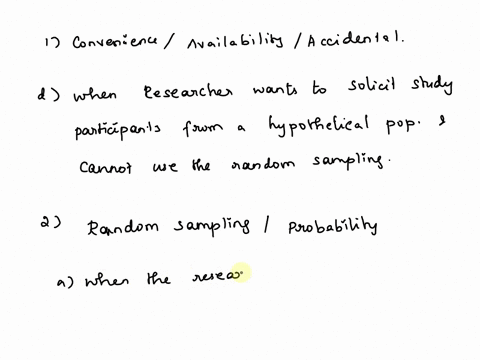 1) Convenience / Availability / Accidental.
d) when Researcher wants to solicit study
participants from a hypothelical pop. &
cannot use the random sampling.
2) Random sampling / Probability
a) when the resea